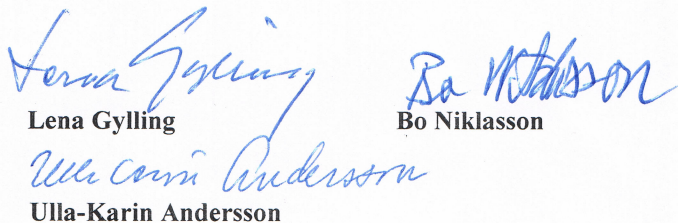 Lena Gylling Bo Niklasson
Lena Gylling Bo Niklasson
Ulla Carin Andersson
Ulla-Karin Andersson